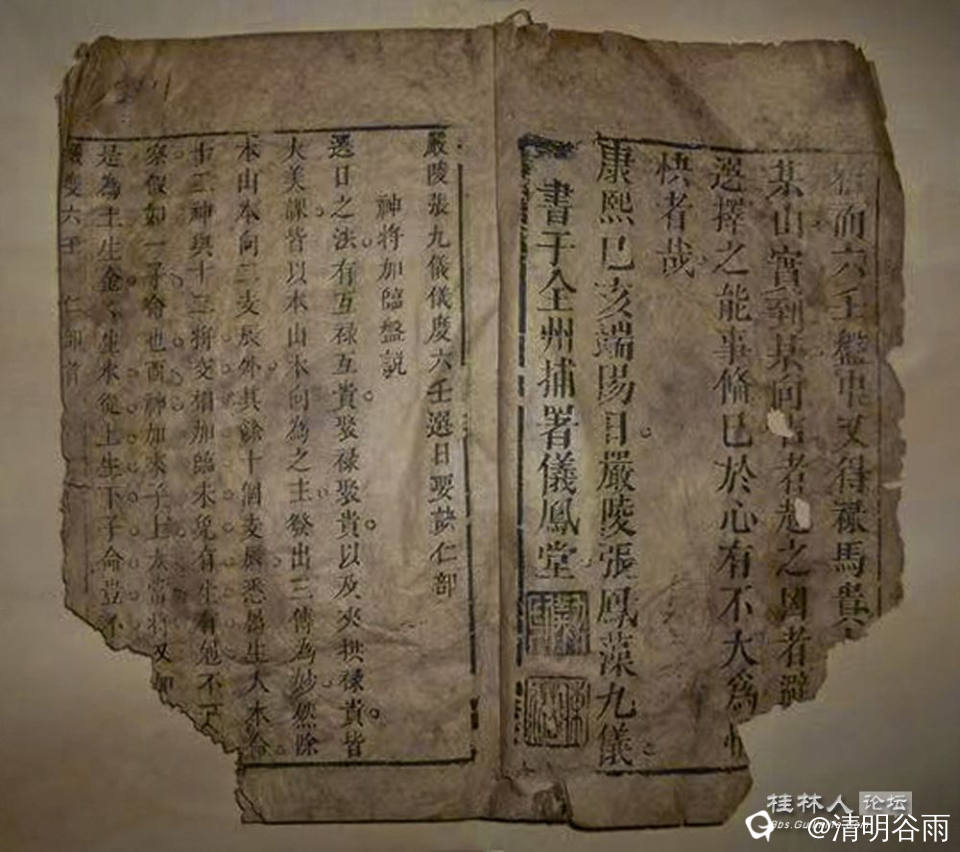 而六壬盤中又得祿馬貴
某山實到某向吉者趨之凶者避
選擇之能事備已於心有不大為
快者哉
康熙己亥端陽日嚴陵張鳳藻九儀
書于全州捕署儀鳳堂
嚴陵張九儀儀度六壬選日要訣仁部
神將加臨盤説
選日之法有互禄互貴聚禄聚貴以及夾拱禄貴皆
大美課皆以本山本向為之主發出三傳為妙然除
本山本向二支辰外其餘十個支辰悉屬生人本命
十二神與十二將交相加臨未免有生有尅不可
察假如一子命也酉神加來子上太常將又加
是為土生金金生水從上生下子命豈不
儀度六壬 仁部
桂林人论坛
bbs.Guilinlife.com
@清明谷雨